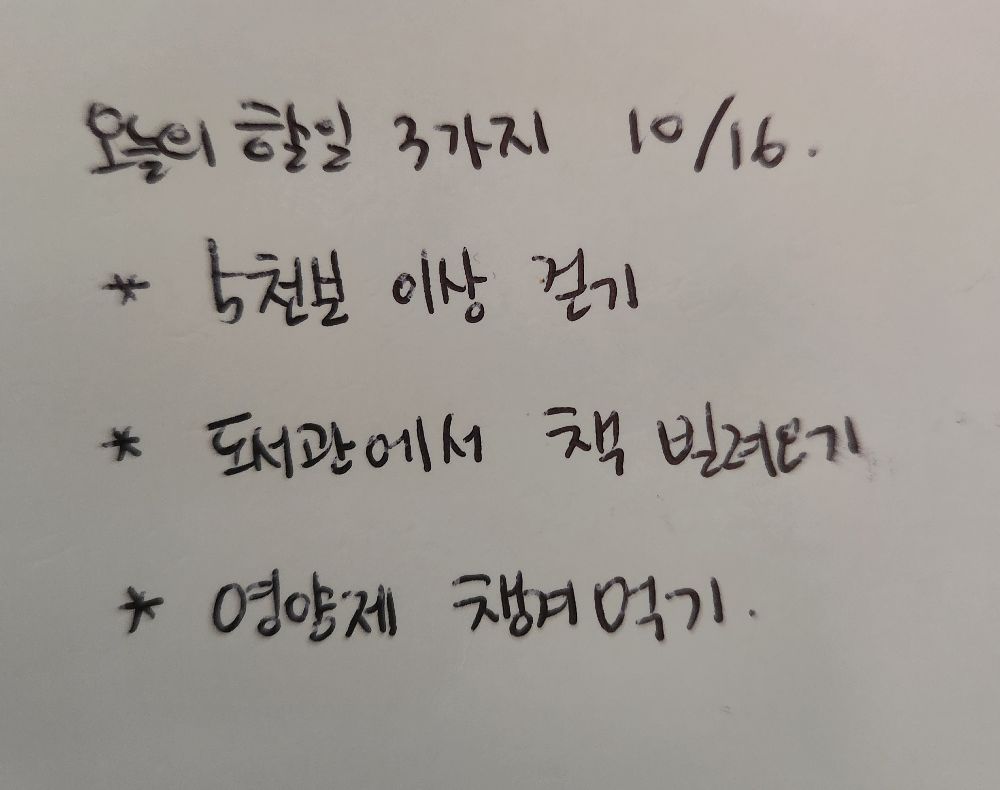 오늘의 할일 3가지 10/16.
* 5천보 이상 걷기
* 도서관에서 책 빌려오기
* 영양제 챙겨먹기.